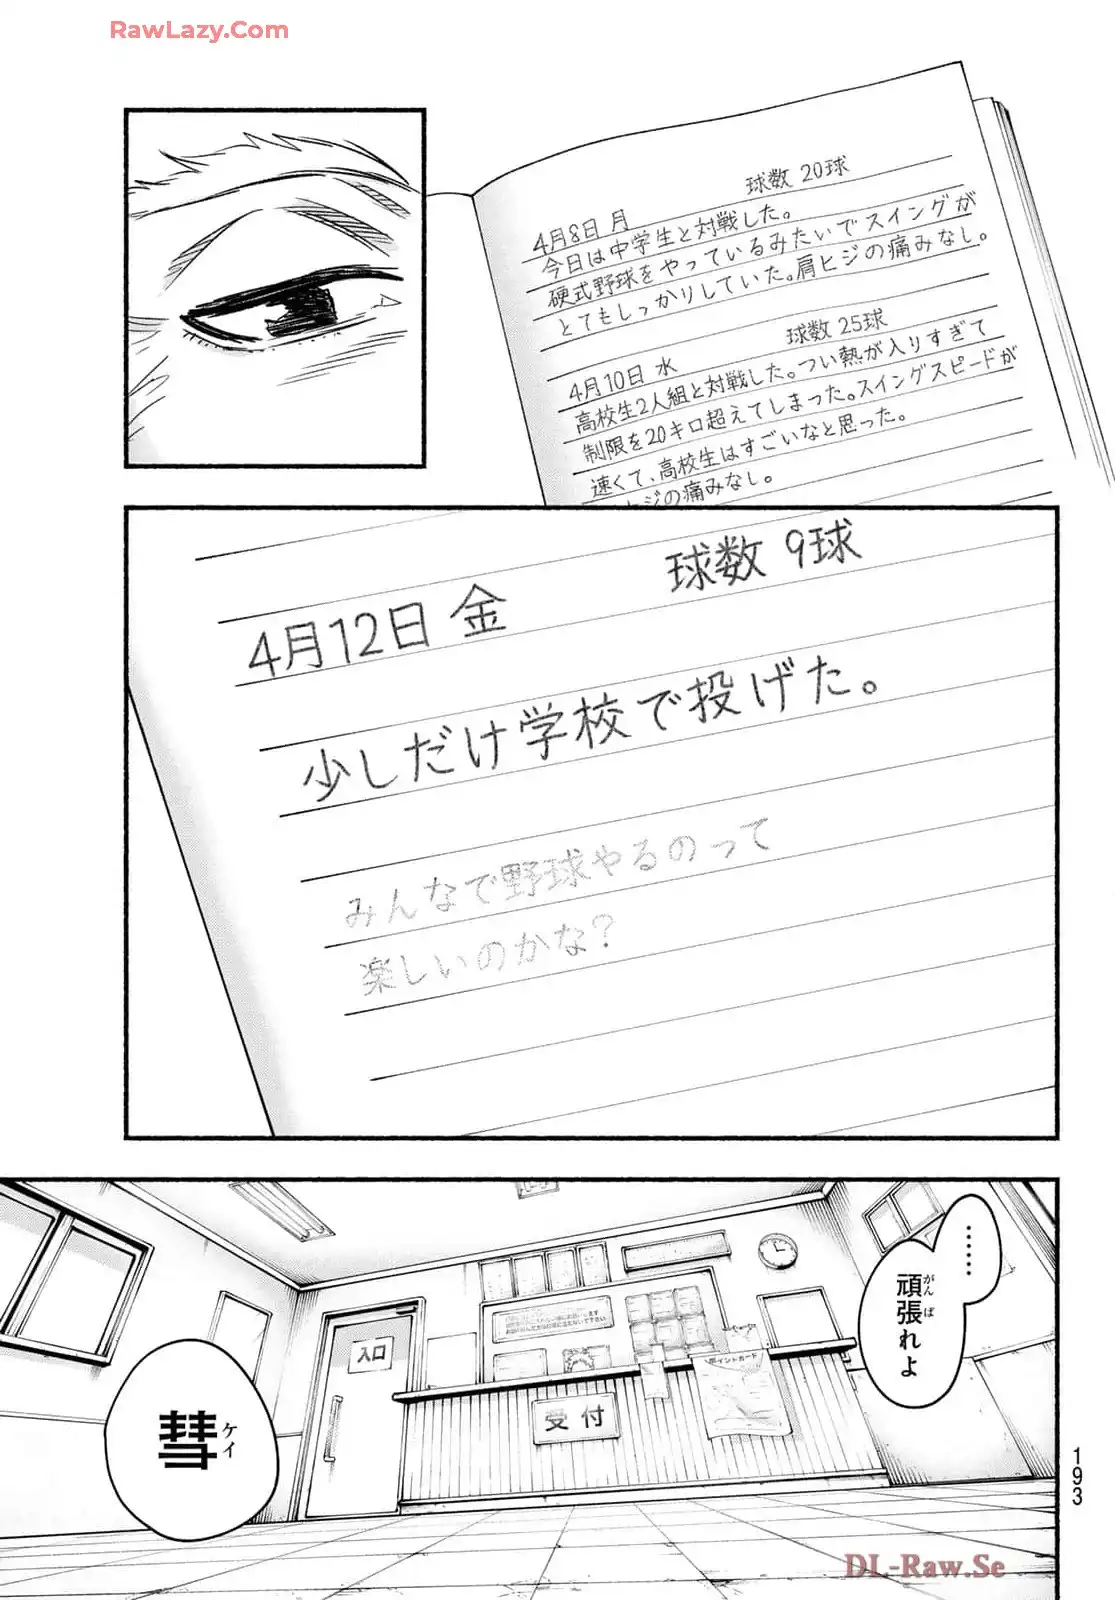 RawLazy.Com
球数 20球
4月8日 月
今日は中学生と対戦した。
硬式野球をやっているみたいでスイングが
とてもしっかりしていた。肩ヒジの痛みなし。
球数 25球
4月10日 水
高校生2人組と対戦した。つい熱が入りすぎて
制限を20キロ超えてしまった。スイングスピードが
速くて、高校生はすごいなと思った。
ヒジの痛みなし。
球数 9球
4月12日 金
少しだけ学校で投げた。
みんなで野球やるのって
楽しいのかな?
……
頑張れよ
がんば
入口
受付
ポイントカード
彗
ケイ
193
DL-Raw.Se